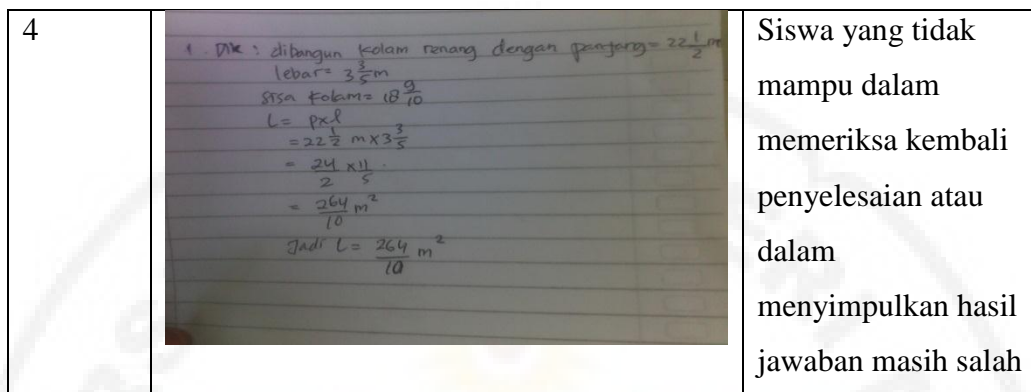 4
1. Dik : dibangun kolam renang dengan panjang = 22 1/2 m
lebar = 3 3/5 m
sisa kolam = 18 9/10
L = p x l
= 22 1/2 m x 3 3/5
= 24/2 x 11/5
= 264/10 m²
Jadi L = 264/10 m²
Siswa yang tidak
mampu dalam
memeriksa kembali
penyelesaian atau
dalam
menyimpulkan hasil
jawaban masih salah